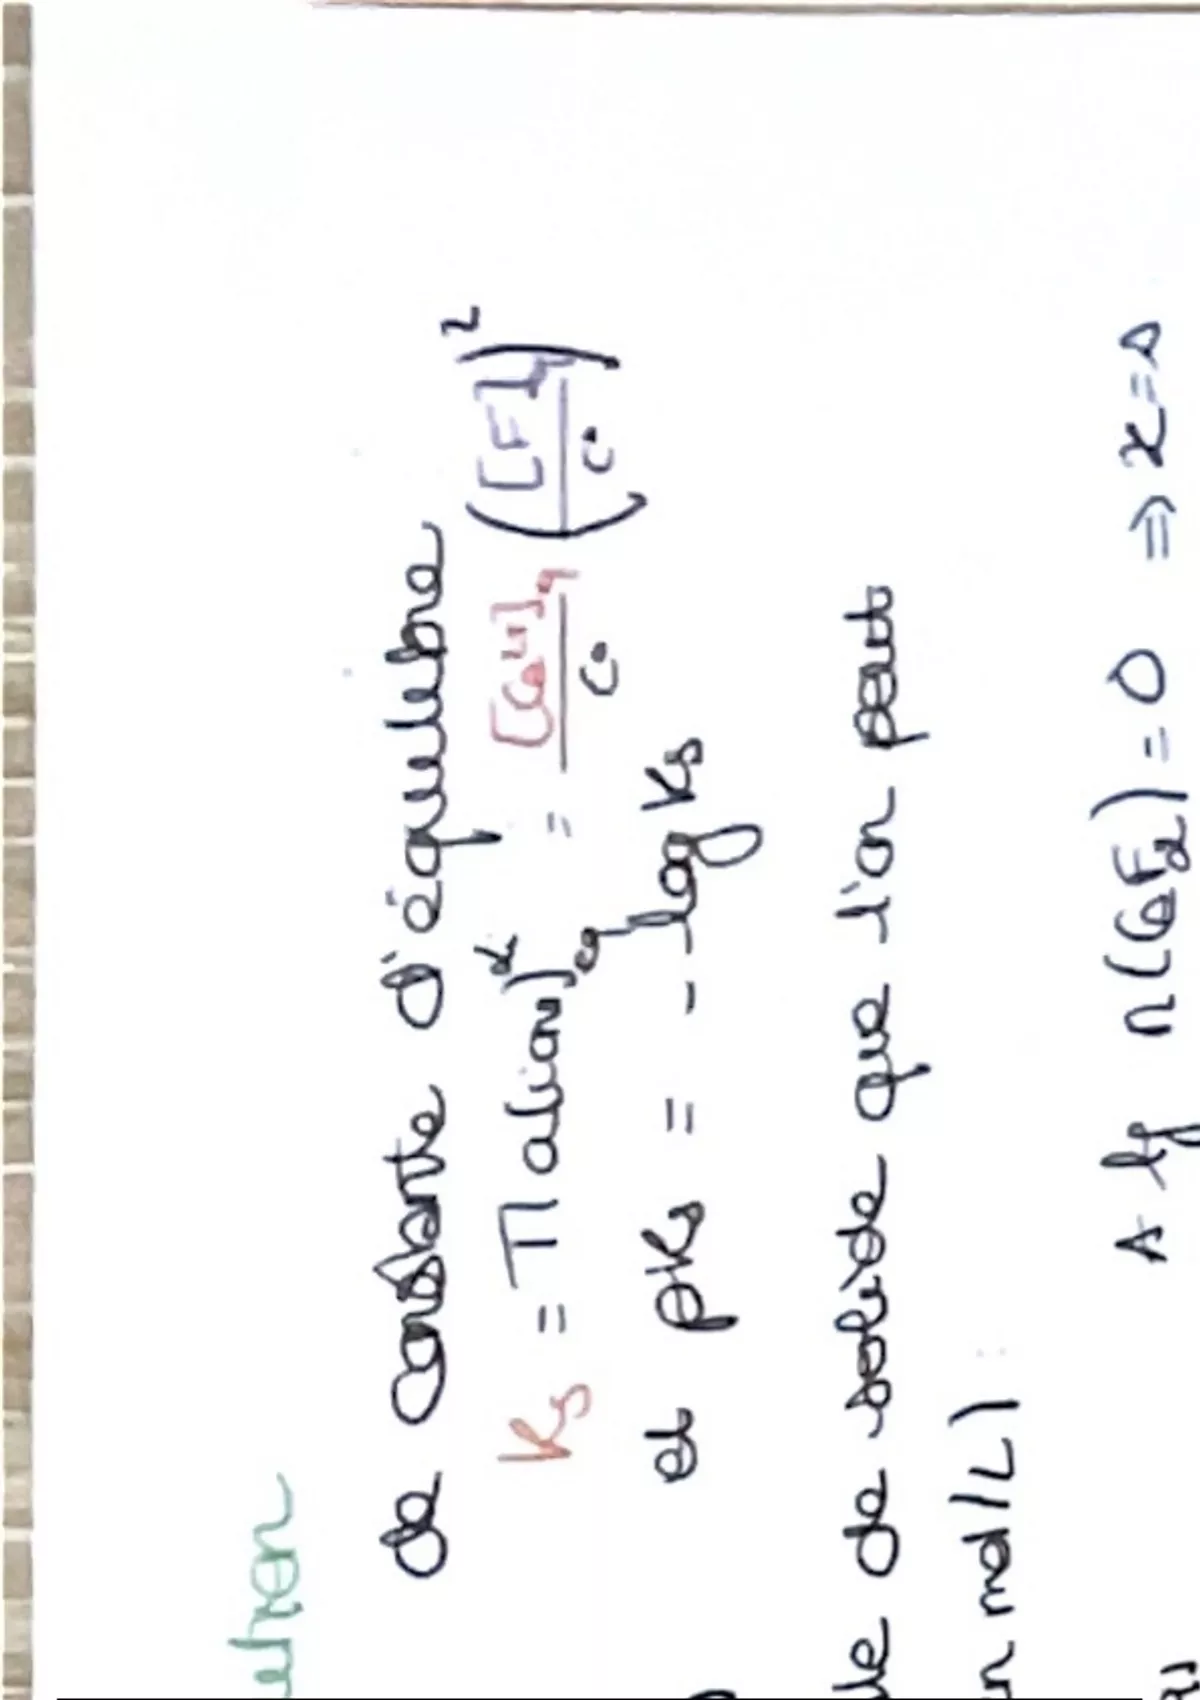 de constante d'équilibre
Ks = Π a(ion)^αi_eq = [Ca²⁺]eq/C° ([F⁻]eq/C°)²
et pKs = - log Ks
de solide que l'on peut
n mol/L)
A lf n(CaF₂) = 0 ⇒ x = s